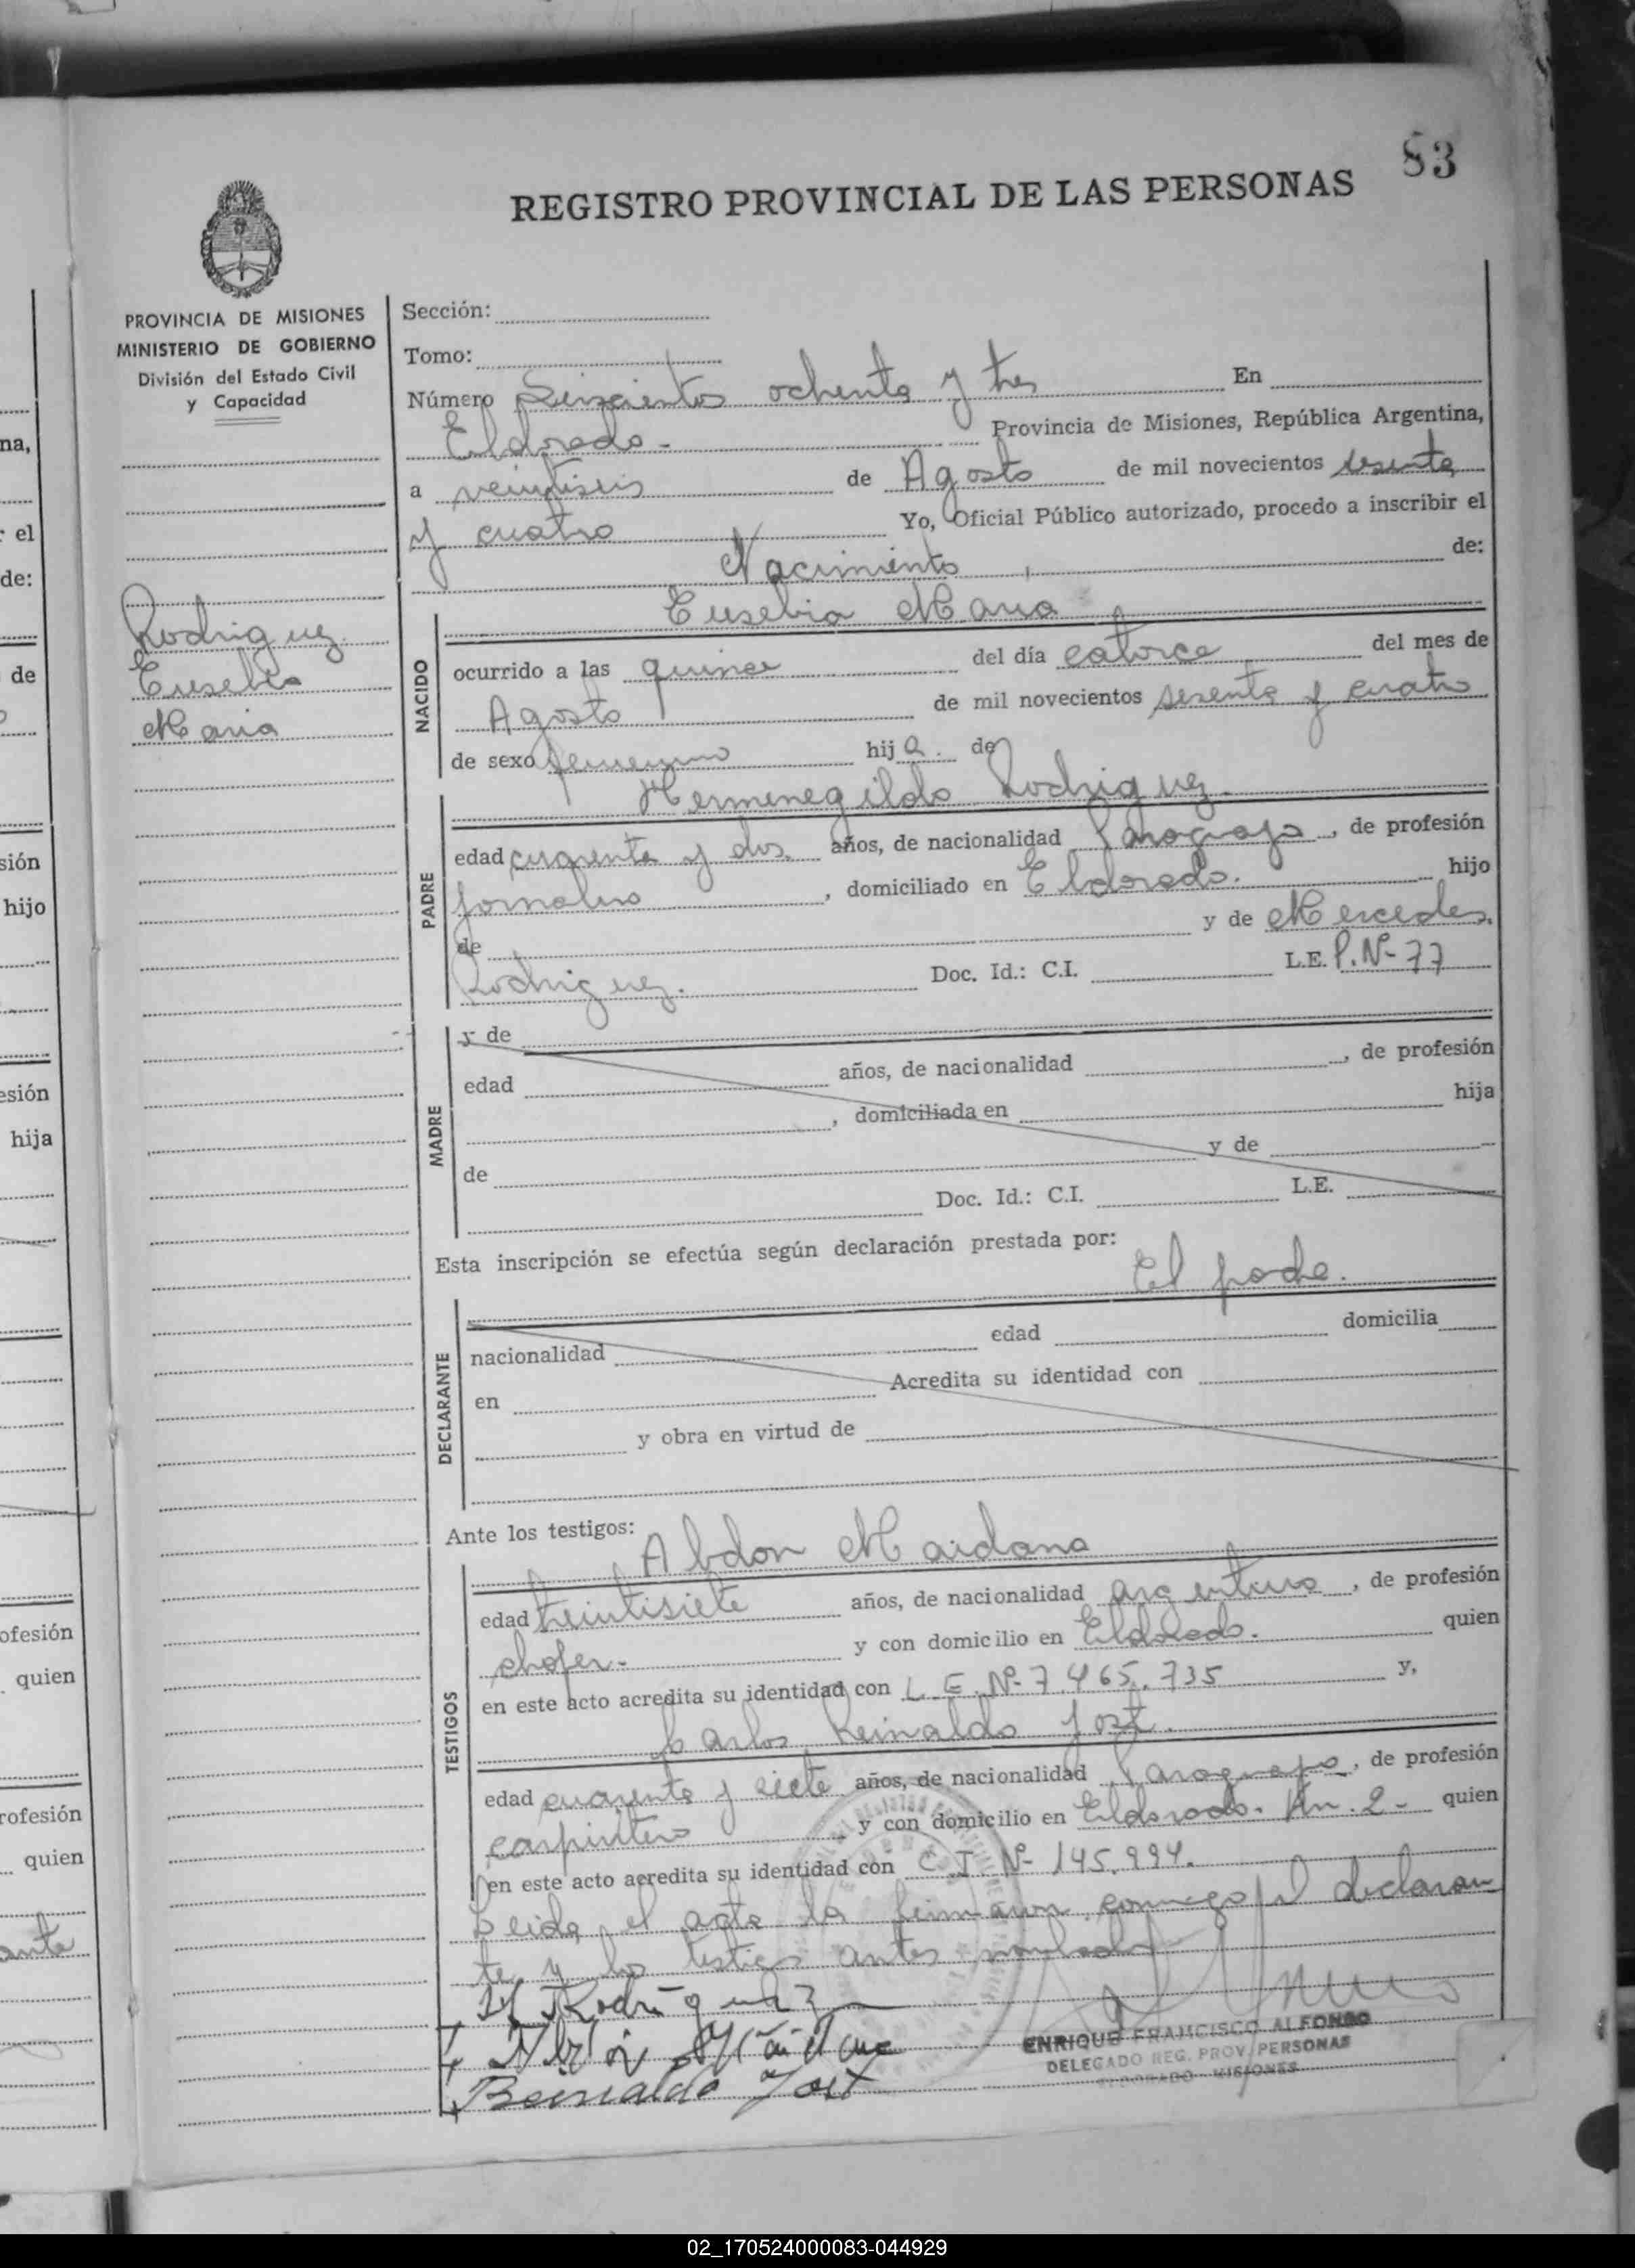 83
REGISTRO PROVINCIAL DE LAS PERSONAS
PROVINCIA DE MISIONES
MINISTERIO DE GOBIERNO
División del Estado Civil
y Capacidad
Rodriguez
Eusebia
Maria
Sección:
Tomo:
Número Seiscientos ochenta y tres En
Eldorado - Provincia de Misiones, República Argentina,
a veintiseis de Agosto de mil novecientos sesenta
y cuatro Yo, Oficial Público autorizado, procedo a inscribir el
Nacimiento de:
NACIDO
Eusebia Maria
ocurrido a las quince del día catorce del mes de
Agosto de mil novecientos sesenta y cuatro
de sexo femenino hija. de
PADRE
Hermenegildo Rodriguez.
edad cuarenta y dos años, de nacionalidad Paraguayo, de profesión
Jornalero, domiciliado en Eldorado. hijo
de y de Mercedes
Rodriguez. Doc. Id.: C.I. L.E. P. Nº 77
MADRE
y de
edad años, de nacionalidad , de profesión
, domiciliada en hija
de y de
Doc. Id.: C.I. L.E.
Esta inscripción se efectúa según declaración prestada por:
El padre.
DECLARANTE
nacionalidad edad domicilia
en Acredita su identidad con
y obra en virtud de
Ante los testigos:
TESTIGOS
Abdon Maidana
edad veintisiete años, de nacionalidad argentino, de profesión
chofer - y con domicilio en Eldorado. quien
en este acto acredita su identidad con L. E. Nº 7.465.735 y,
Carlos Reinaldo Jost.
edad cuarenta y siete años, de nacionalidad Paraguayo, de profesión
carpintero y con domicilio en Eldorado. Km. 2 - quien
en este acto acredita su identidad con C. I Nº 145.994.
Leida el acta la firmaron conmigo el declaran
te y los testigos antes nombrados
H Rodriguez
Abdón Maidana
Reinaldo Jost
ENRIQUE FRANCISCO ALFONSO
DELEGADO REG. PROV. PERSONAS
ELDORADO - MISIONES
na,
r el
de:
de
sión
hijo
esión
hija
ofesión
quien
rofesión
quien
02_170524000083-044929